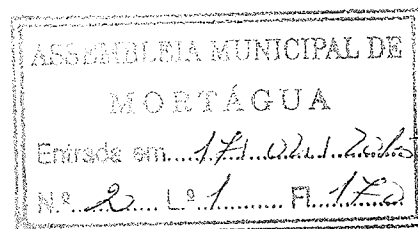 ASSEMBLEIA MUNICIPAL DE
MORTÁGUA
Entrada em 17
N.º 2 L.º 1 Fl. 170